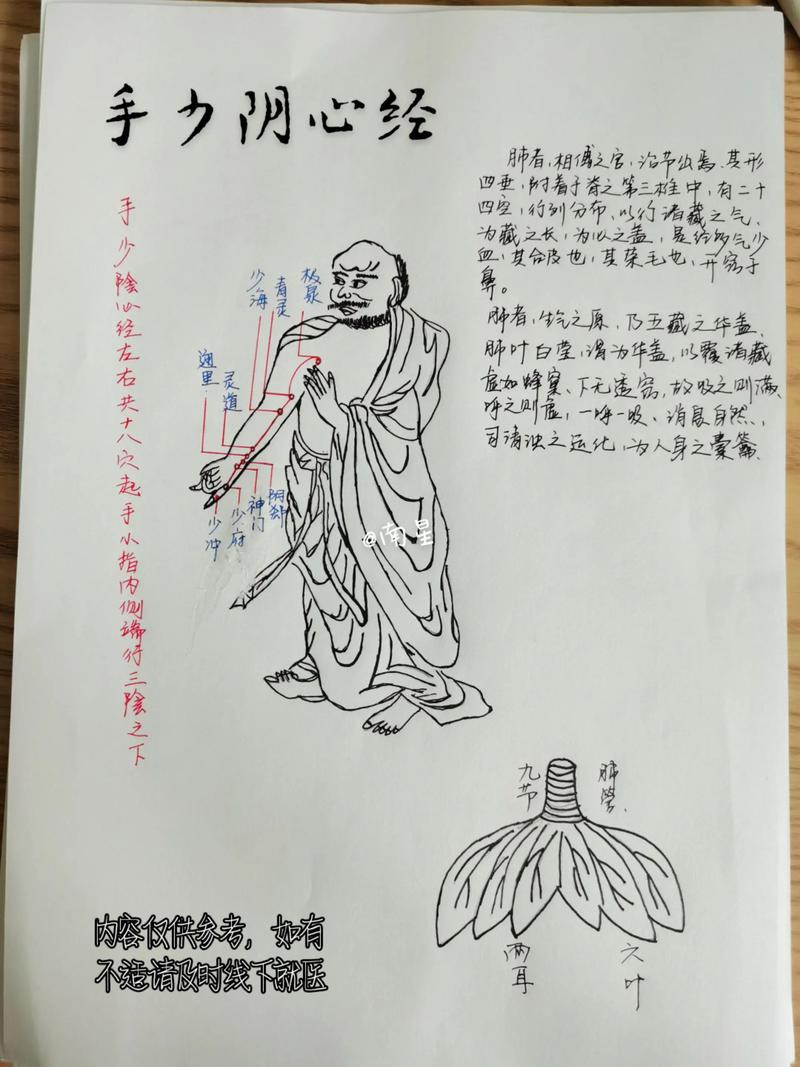 手少阴心经
手少陰心经左右共十八穴起手小指内侧端行三陰之下
肺者，相傅之官，治节出焉，其形
四垂，附着于脊之第三椎中，有二十
四空，行列分布，以行诸藏之气，
为藏之长，为心之盖，是经多气少
血，其合皮也，其荣毛也，开窍于
鼻。
肺者，生气之原，乃五藏之华盖，
肺叶白莹，谓为华盖，以覆诸藏
虚如蜂窠，下无透窍，故吸之则满，
呼之则虚，一呼一吸，消息自然，
司清浊之运化，为人身之橐籥
少海
青灵
极泉
通里
灵道
少冲
少府
神门
阴郄
@南星
九节
肺管
两耳
六叶
内容仅供参考，如有
不适请及时线下就医